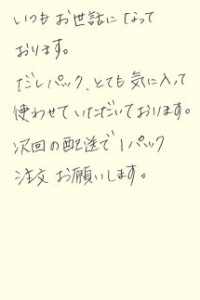 いつもお世話になって
おります。
だしパック、とても気に入って
使わせていただいております。
次回の配送で1パック
注文お願いします。